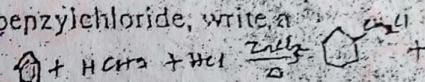 benzylchloride, write a
+ HCHO + HCl ZnCl2 Δ CH2Cl +